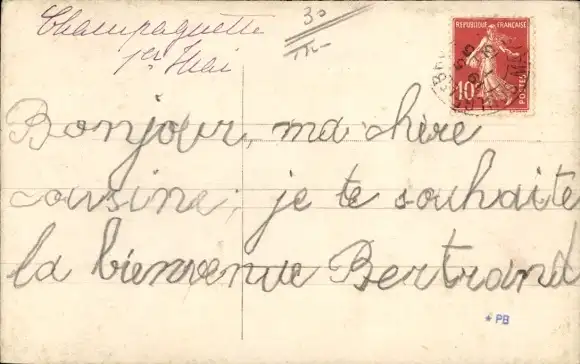 Champaquette
1er Mai
30
REPUBLIQUE FRANÇAISE
10c
POSTES
Bonjour, ma chère
cousine; je te souhaite
la bienvenue Bertrand
* PB